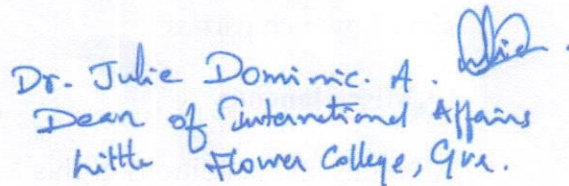 Dr. Julie Dominic. A.
Dean of International Affairs
Little Flower College, Gvr.